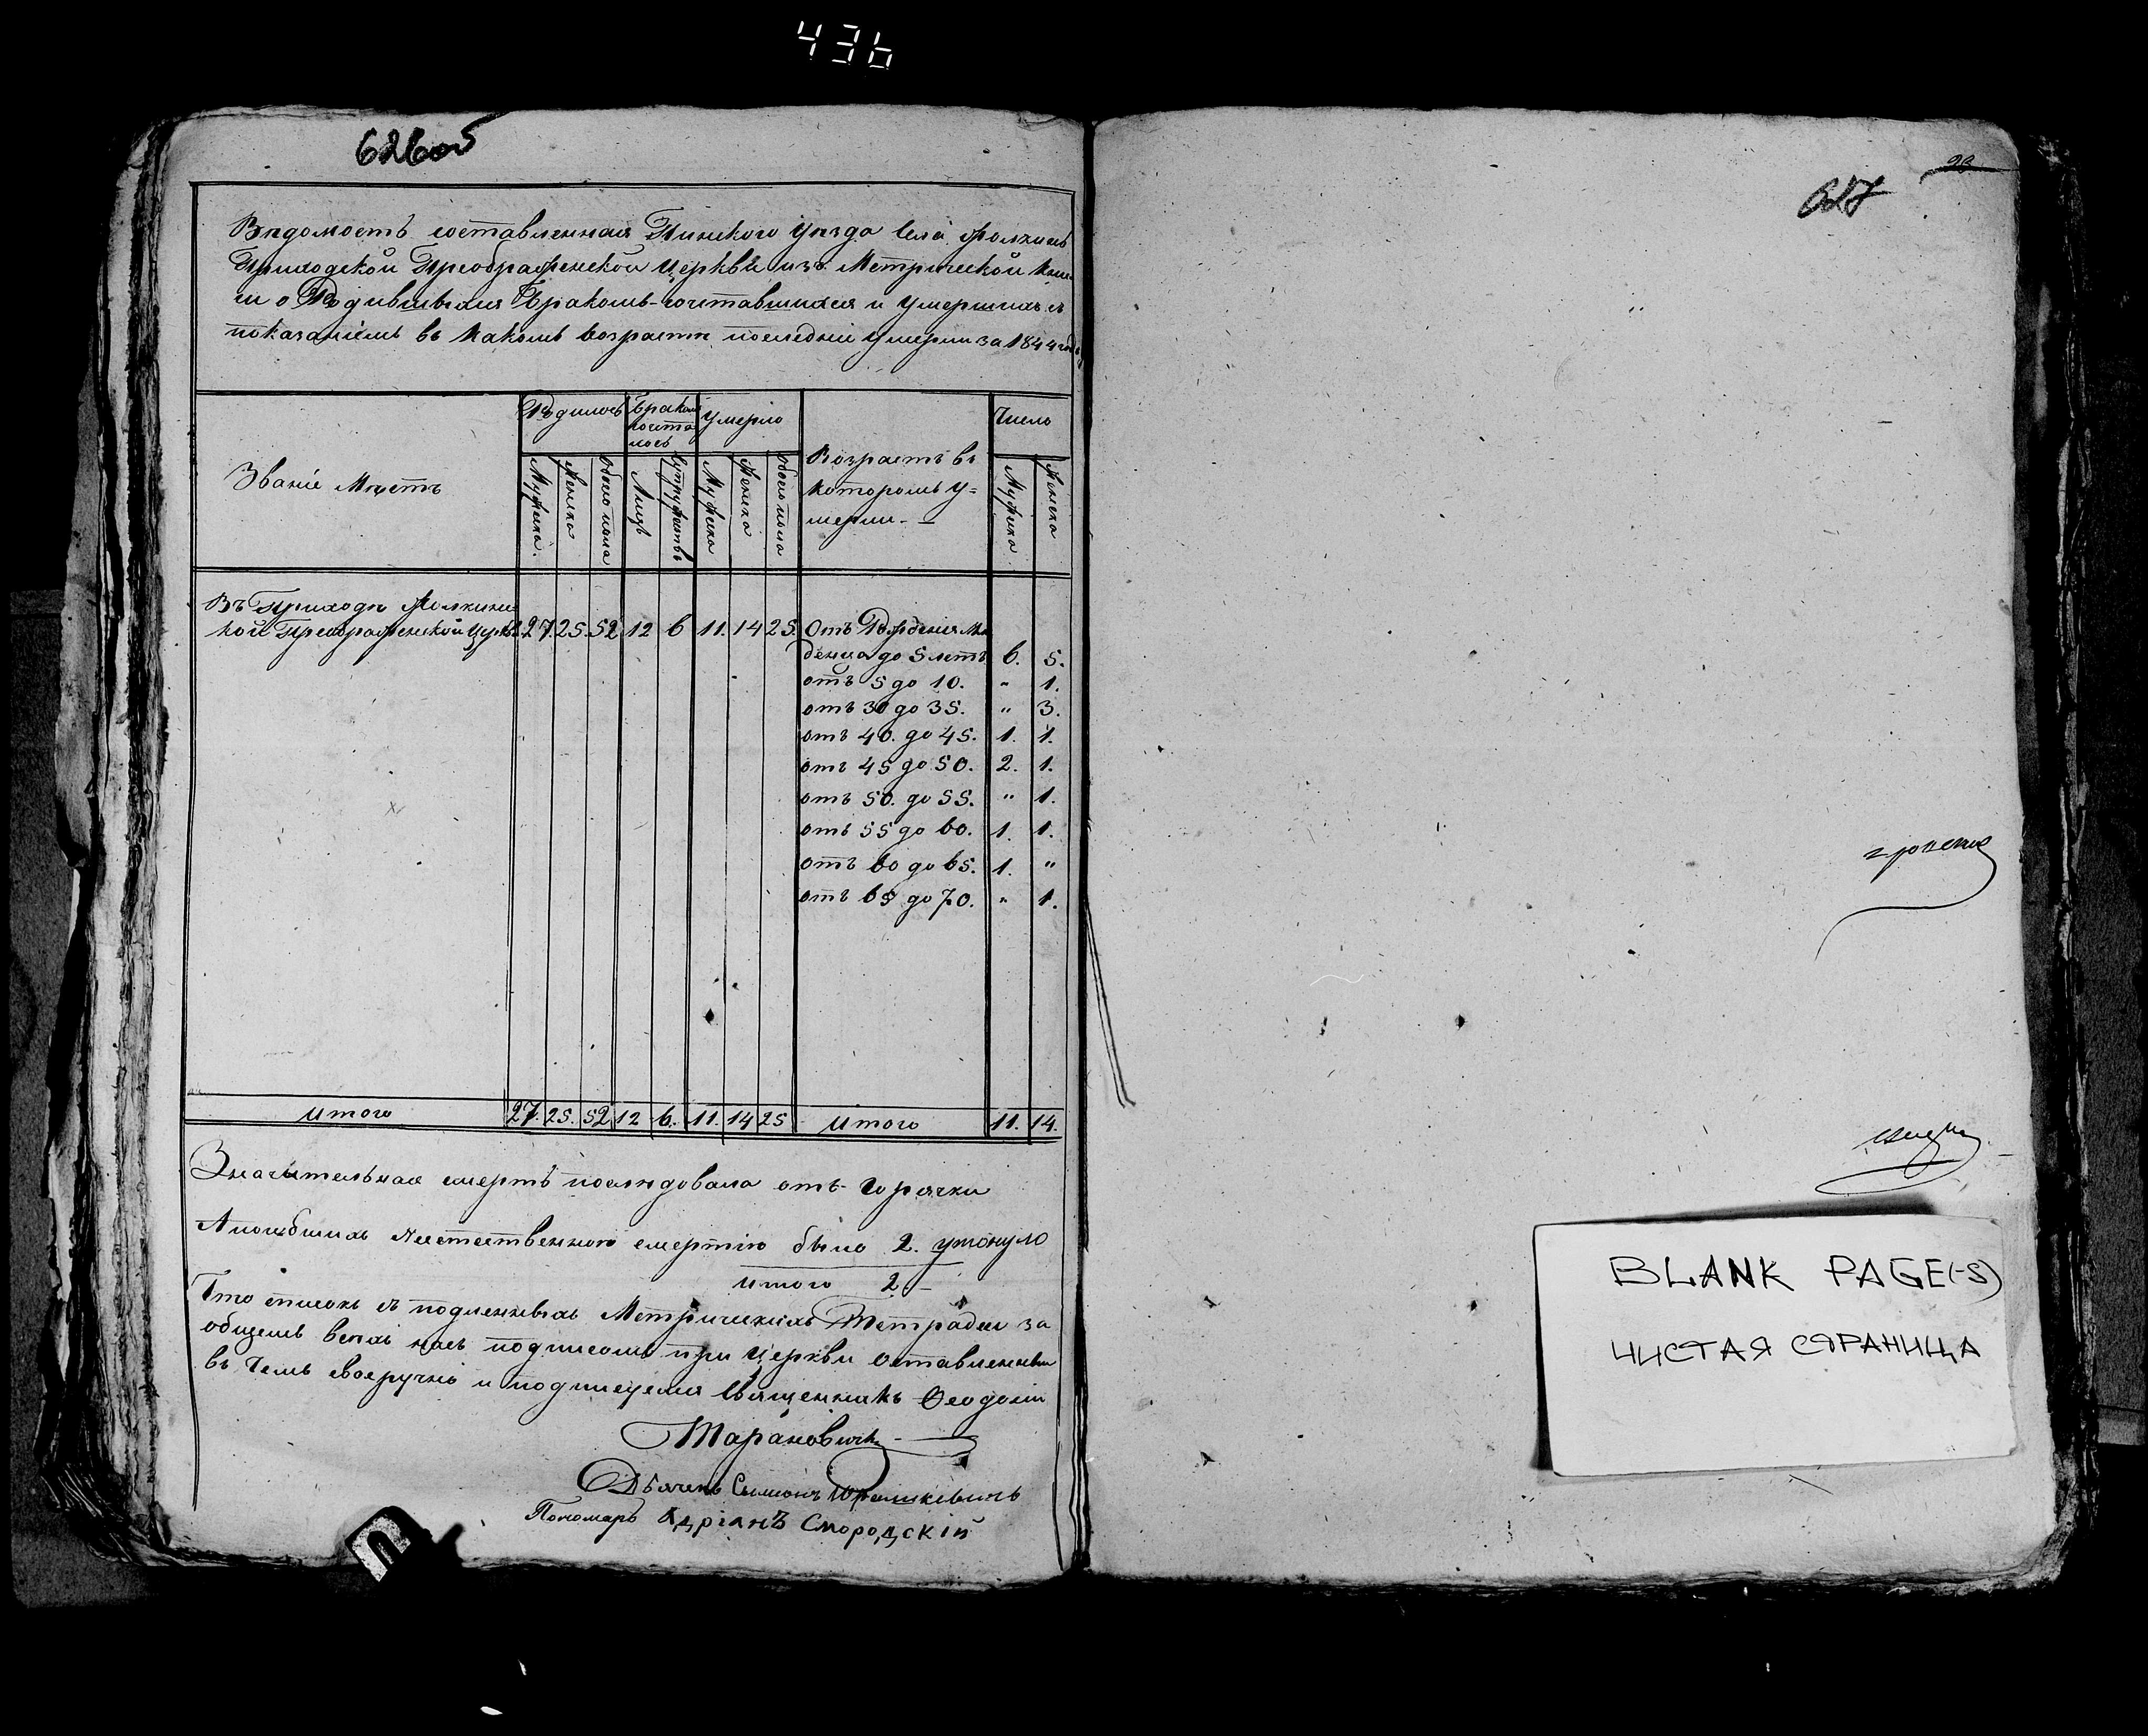 436
626об
Вѣдомость составленная Пинскаго уѣзда села Жолкинь
Приходской Преображенской Церкви изъ Метрической Кни
ги о Родившихся Бракомъ-сочетавшихся и умершихъ съ
показаніемъ въ какомъ возрастѣ последніе умерли за 1844 годъ
Родилось Бракомъ сочета лось Умерло Число
Званіе Мѣстъ
Мужска. Женска Обоего пола Лицъ Супружествъ Мужска Женска Обоего пола
Возрастъ въ
которомъ у=
мерли.
Мужска Женска
Въ Приходѣ Жолкинс
кой Преображенской Церкв. 27. 25. 52 12 6 11. 14 25. Отъ Рожденія Мла
денца до 5 летъ 6. 5.
отъ 5 до 10. " 1.
отъ 30 до 35. " 3.
отъ 40. до 45. 1. 1.
отъ 45 до 50. 2. 1.
отъ 50. до 55. " 1.
отъ 55 до 60. 1. 1.
отъ 60 до 65. 1. "
отъ 65 до 70. " 1.
Итого 27. 25. 52 12 6. 11. 14 25 Итого 11. 14.
Значительная смерть последовала отъ Горячки
А погибшихъ Неестественною смертію было 2. утонуло
Итого 2
Что списокъ съ подленныхъ Метрическихъ Тетрадей за
общемъ всехъ насъ подписомъ при Церкви оставленныхъ
въ Чемъ своеручно и подписуемся Священникъ Ѳеодосій
Тарановичъ
Дьячекъ Симонъ Юрашкевичъ
Пономарь Адріанъ Смородскій
23
627
BLANK PAGE(-S)
ЧИСТАЯ СТРАНИЦА